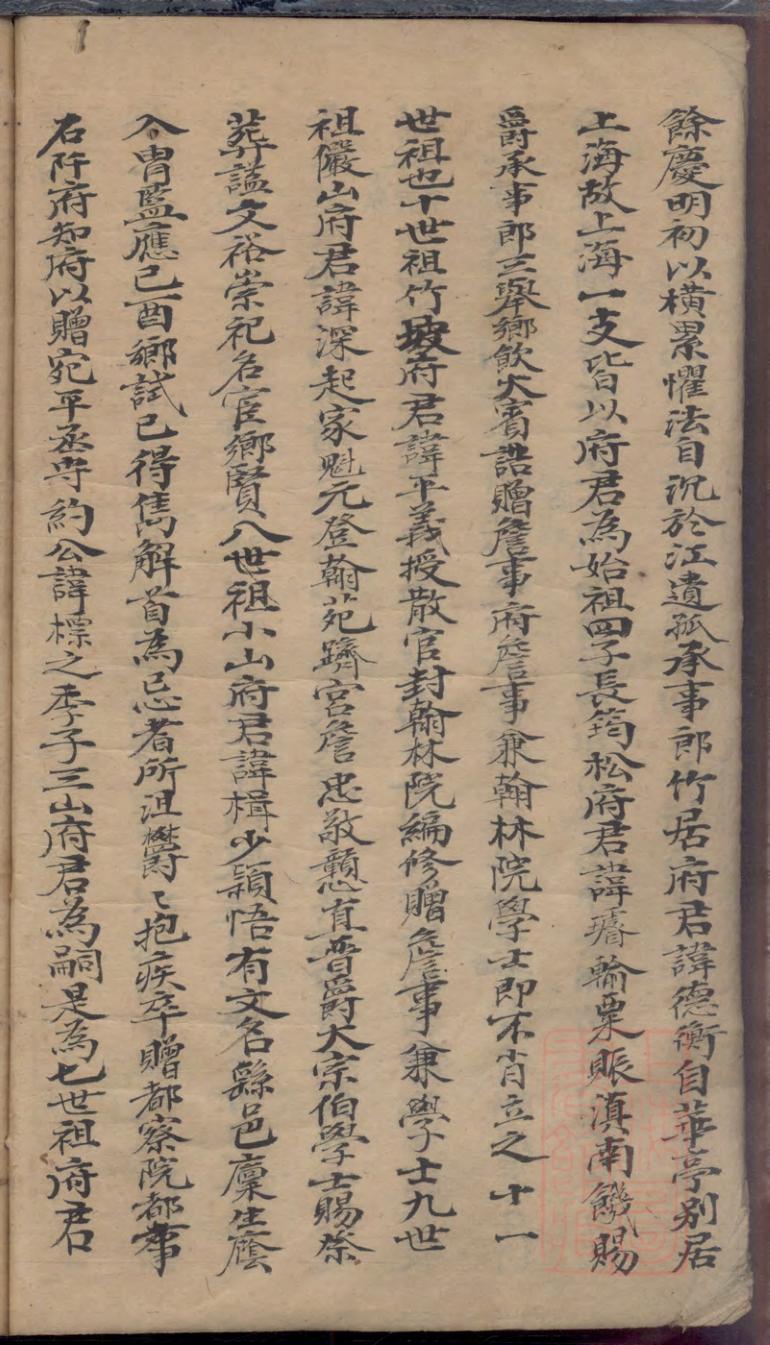 餘慶明初以橫累懼法自沉於江遺孤承事郎竹居府君諱德衡自華亭別居
上海故上海一支皆以府君為始祖四子長筠松府君諱璿輸粟賑滇南饑賜
爵承事郎三舉鄉飲大賓誥贈詹事府詹事兼翰林院學士即不肖立之十一
世祖也十世祖竹坡府君諱平義授散官封翰林院編修贈詹事兼學士九世
祖儼山府君諱深起家魁元登翰苑躋宮詹忠敬戇直晋爵大宗伯學士賜祭
葬謚文裕崇祀名宦鄉賢八世祖小山府君諱楫少穎悟有文名縣邑廩生廕
入胄監應己酉鄉試已得雋解首為忌者所沮鬱〻抱疾卒贈都察院都事
石阡府知府以贈宛平丞守約公諱標之季子三山府君為嗣是為七世祖府君